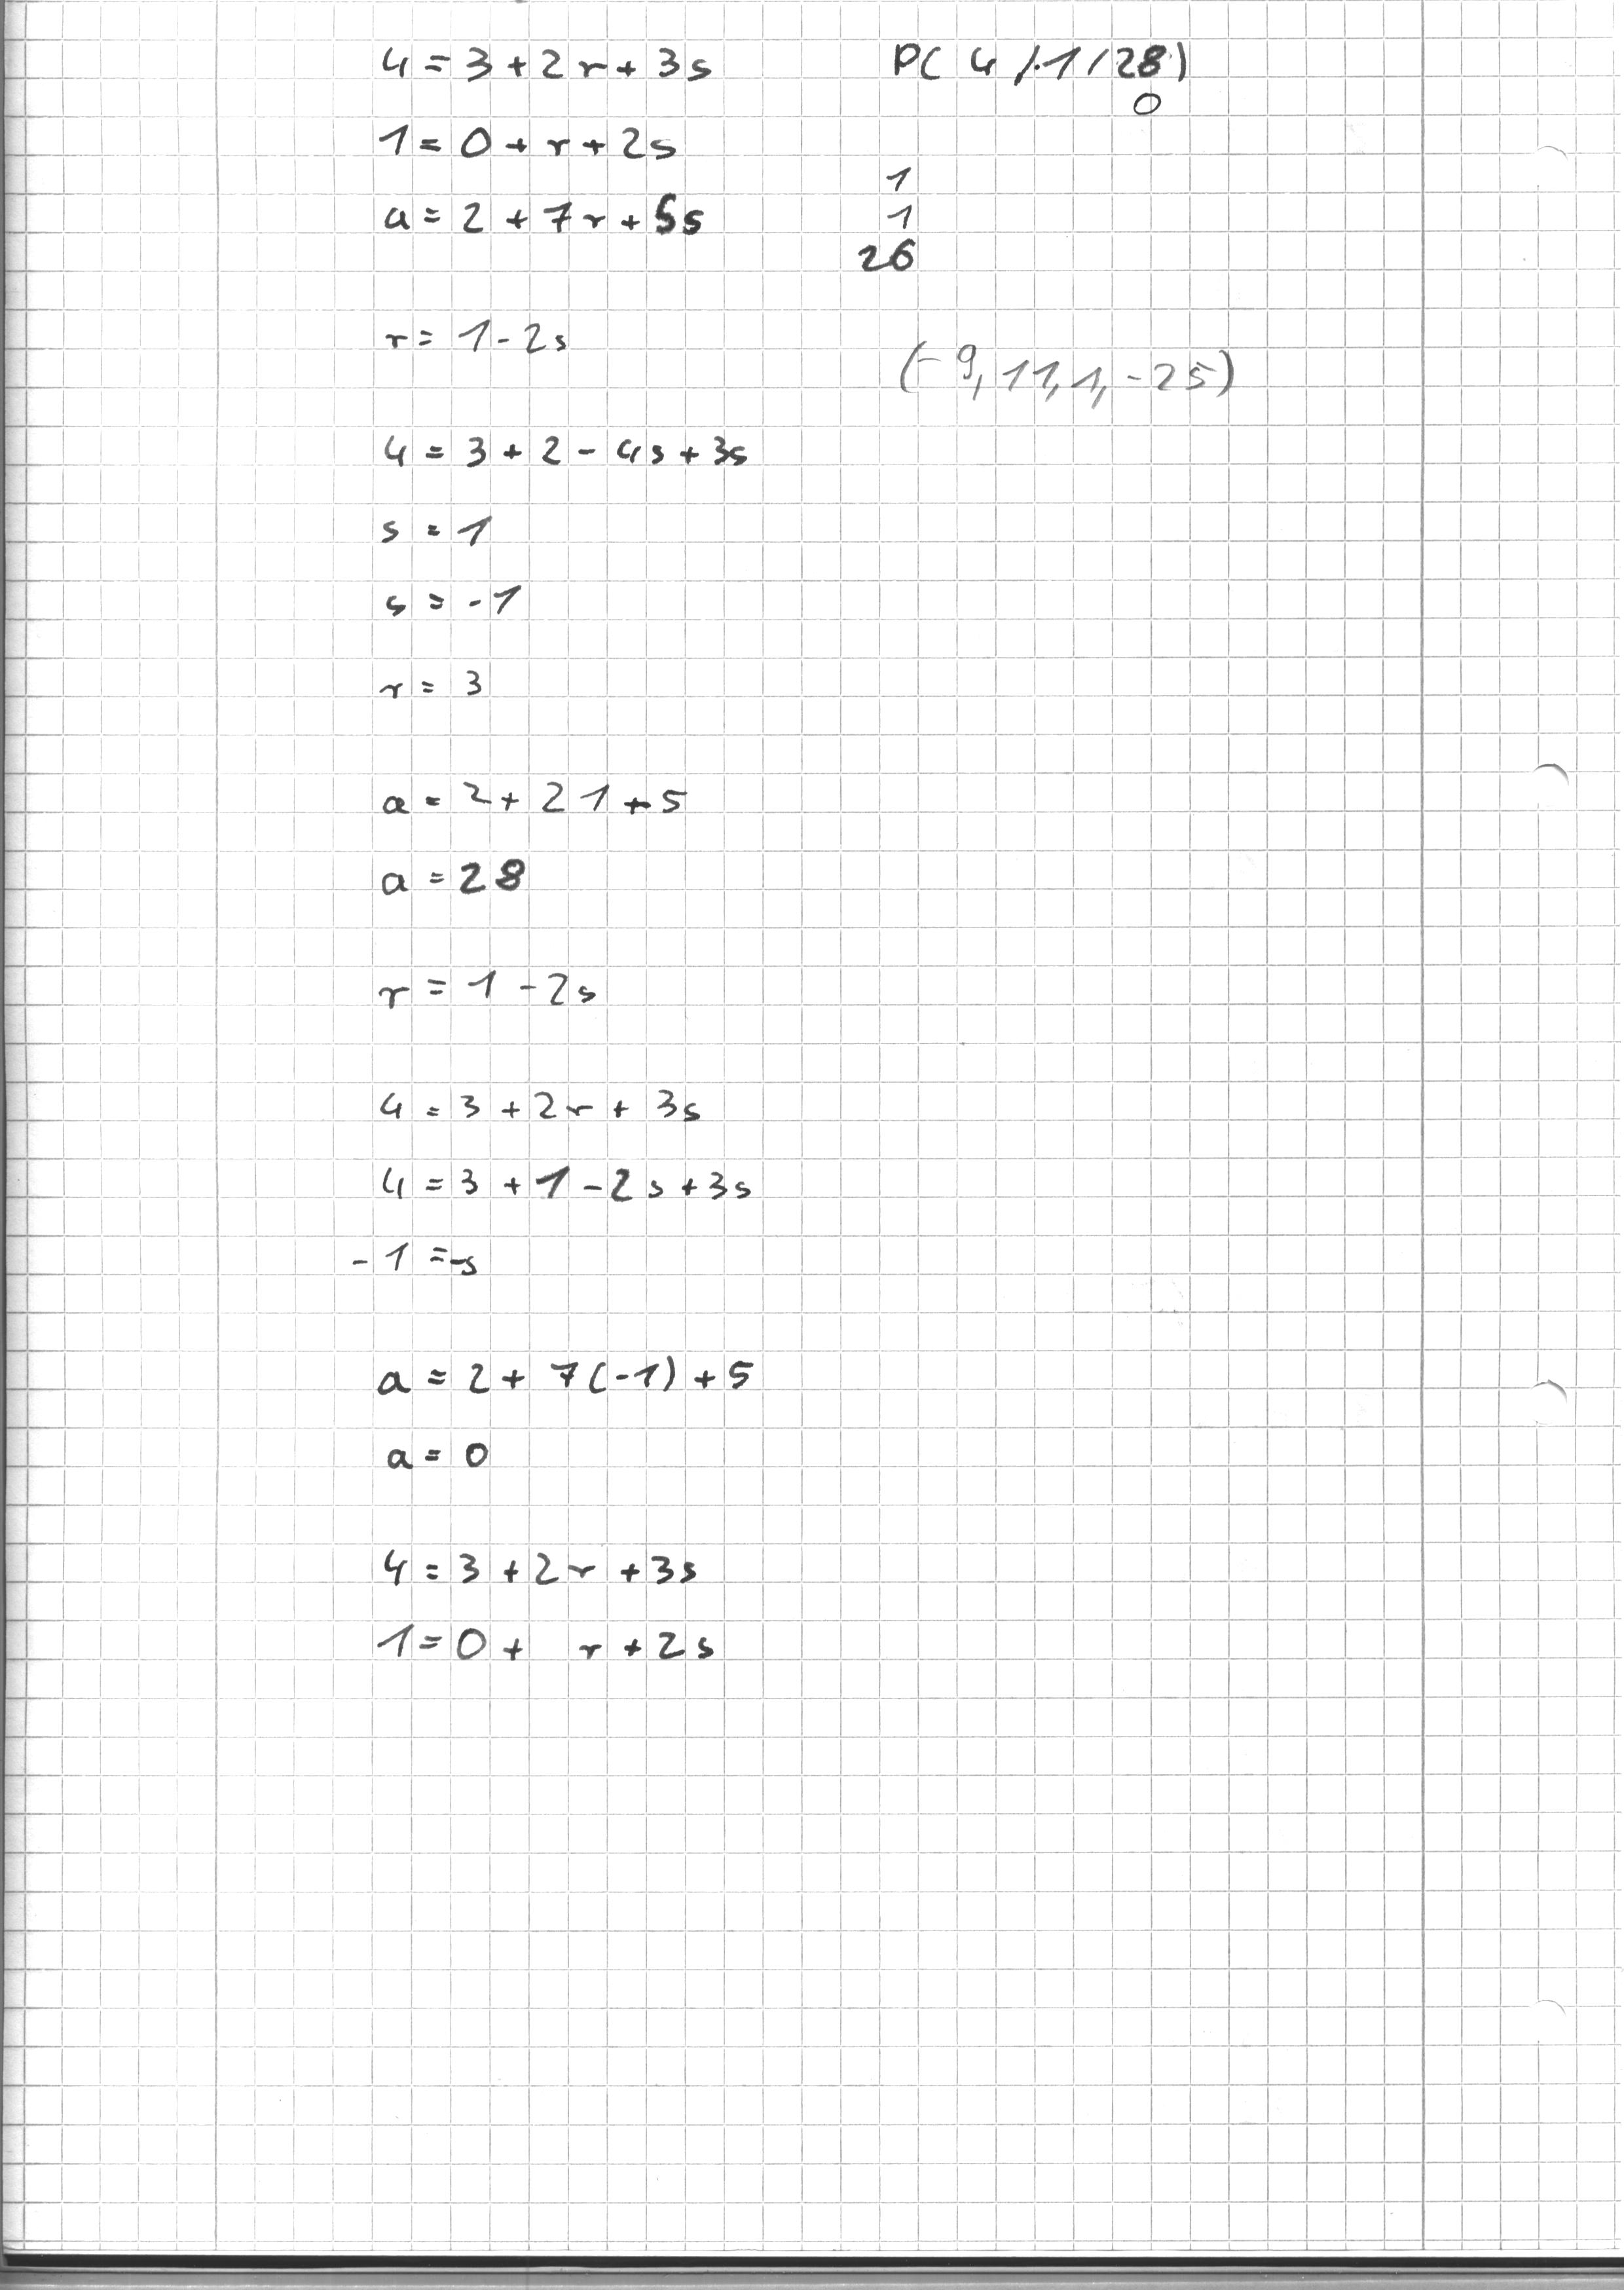 4 = 3 + 2r + 3s
1 = 0 + r + 2s
a = 2 + 7r + 5s
r = 1 - 2s
4 = 3 + 2 - 4s + 3s
s = 1
s = -1
r = 3
a = 2 + 21 + 5
a = 28
r = 1 - 2s
4 = 3 + 2r + 3s
4 = 3 + 1 - 2s + 3s
-1 = -s
a = 2 + 7(-1) + 5
a = 0
4 = 3 + 2r + 3s
1 = 0 + r + 2s
P( 4 / 1 / 28 )
0
1
1
26
(-9, 11, 1, -25)